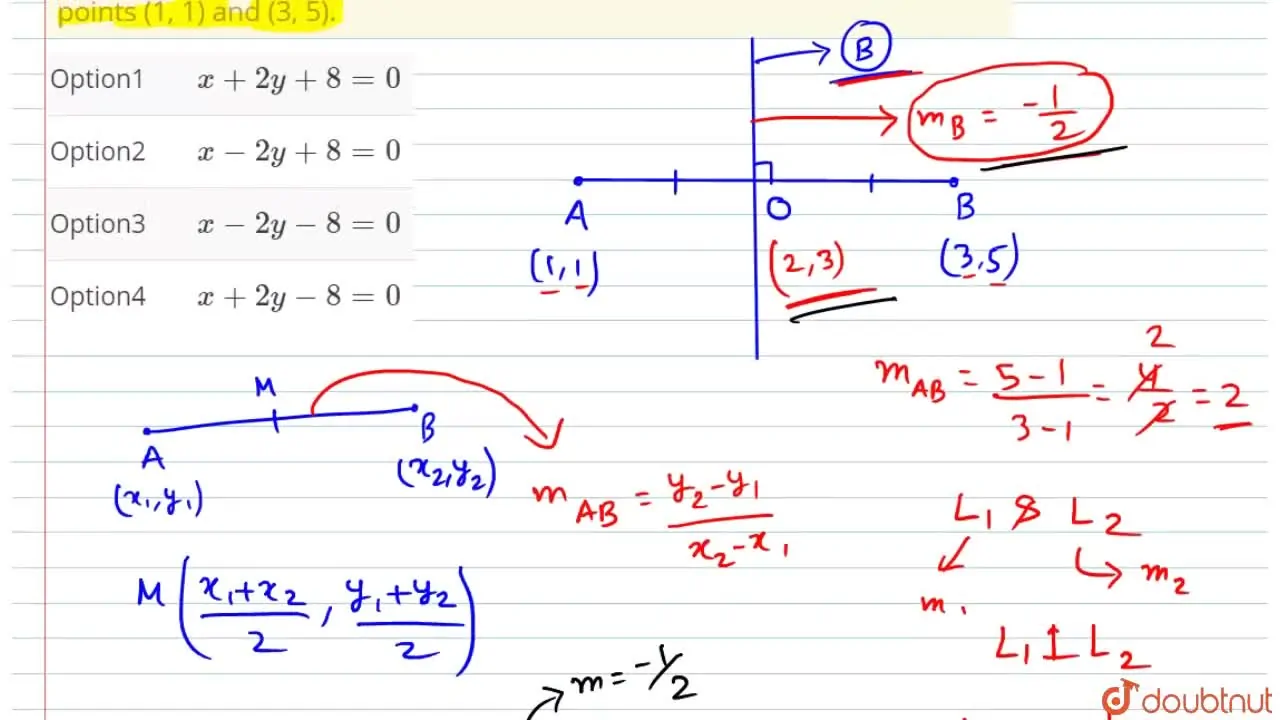 points (1, 1) and (3, 5).
Option1 x + 2y + 8 = 0
Option2 x − 2y + 8 = 0
Option3 x − 2y − 8 = 0
Option4 x + 2y − 8 = 0
B
m_B = -1/2
A O B
(1,1) (2,3) (3,5)
m_AB = (5-1)/(3-1) = 4/2 = 2
2
M
A B
(x₁,y₁) (x₂,y₂)
m_AB = (y₂-y₁)/(x₂-x₁)
L₁ & L₂
m₁ m₂
L₁ ⊥ L₂
M((x₁+x₂)/2, (y₁+y₂)/2)
m = -1/2
doubtnut